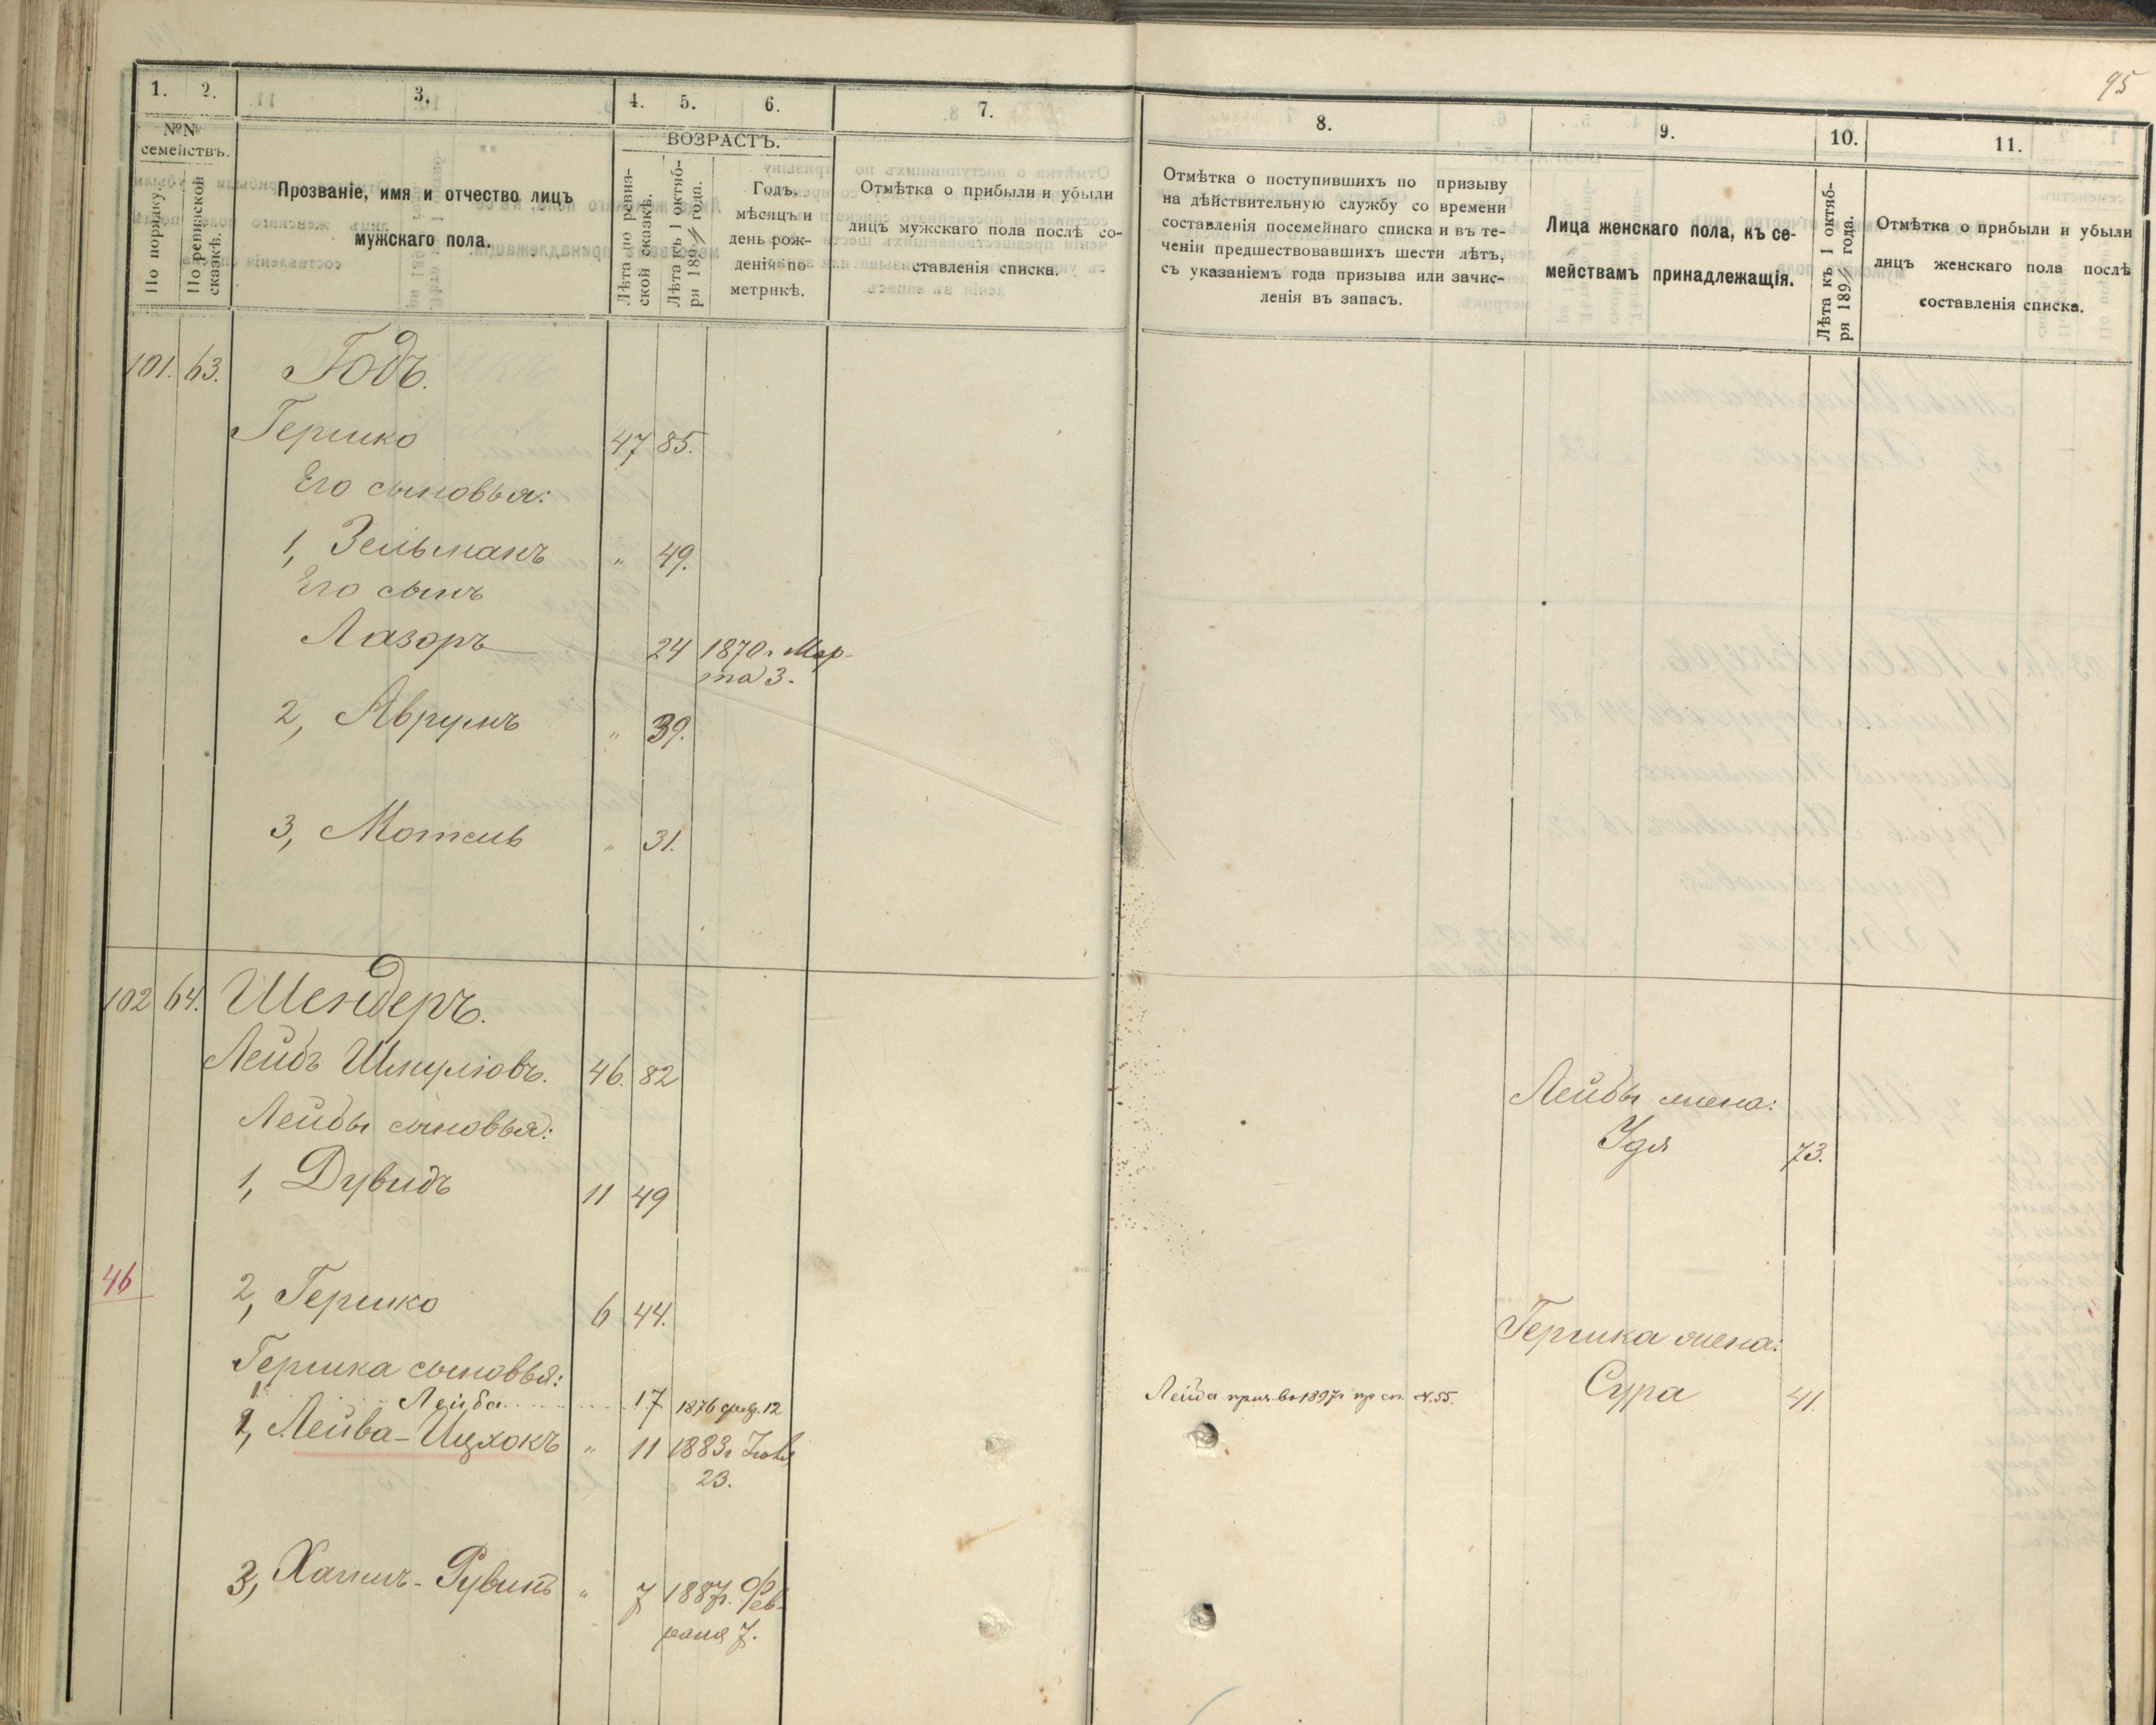 95
1. 2. 3. 4. 5. 6. 7.
№№ семействъ.
По порядку.
По ревизской сказкѣ.
Прозваніе, имя и отчество лицъ
мужскаго пола.
ВОЗРАСТЪ.
Лѣта по ревиз-
ской сказкѣ.
Лѣта къ 1 октяб-
ря 1894 года.
Годъ,
мѣсяцъ и
день рож-
денія по
метрикѣ.
Отмѣтка о прибыли и убыли
лицъ мужскаго пола послѣ со-
ставленія списка.
8. 9. 10. 11.
Отмѣтка о поступившихъ по призыву
на дѣйствительную службу со времени
составленія посемейнаго списка и въ те-
ченіи предшествовавшихъ шести лѣтъ,
съ указаніемъ года призыва или зачис-
ленія въ запасъ.
Лица женскаго пола, къ се-
мействамъ принадлежащія.
Лѣта къ 1 октяб-
ря 1894 года.
Отмѣтка о прибыли и убыли
лицъ женскаго пола послѣ
составленія списка.
101. 63. Годъ.
Гершко 47 85.
Его сыновья:
1, Зельманъ " 49.
Его сынъ
Лазоръ 24 1870 г. Мар-
та 3.
2, Аврумъ " 39.
3, Мотель " 31.
102 64. Шендеръ.
Лейбъ Шмуліовъ. 46. 82
Лейбы сыновья:
1, Дувидъ 11 49
46
2, Гершко 6 44.
Гершка сыновья:
1, Лейба 17 1876 фев. 12
2, Лейва-Ицхокъ " 11 1883 г. Іюля
23.
3, Хаимъ-Рувинъ " 7 1887 г. Фев-
раля 7.
Лейбы жена:
Удя 73.
Гершка жена:
Лейба прин. въ 1897 г. пр сп. №55. Сура 41.